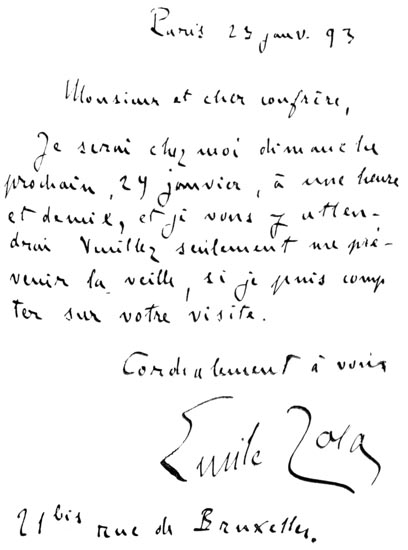 Paris 23 janv. 93
Monsieur et cher confrère,
Je serai chez moi dimanche
prochain, 29 janvier, à une heure
et demie, et je vous y atten-
drai Veuillez seulement me pré-
venir la veille, si je puis comp
ter sur votre visite.
Cordialement à vous
Emile Zola
21 bis rue de Bruxelles.